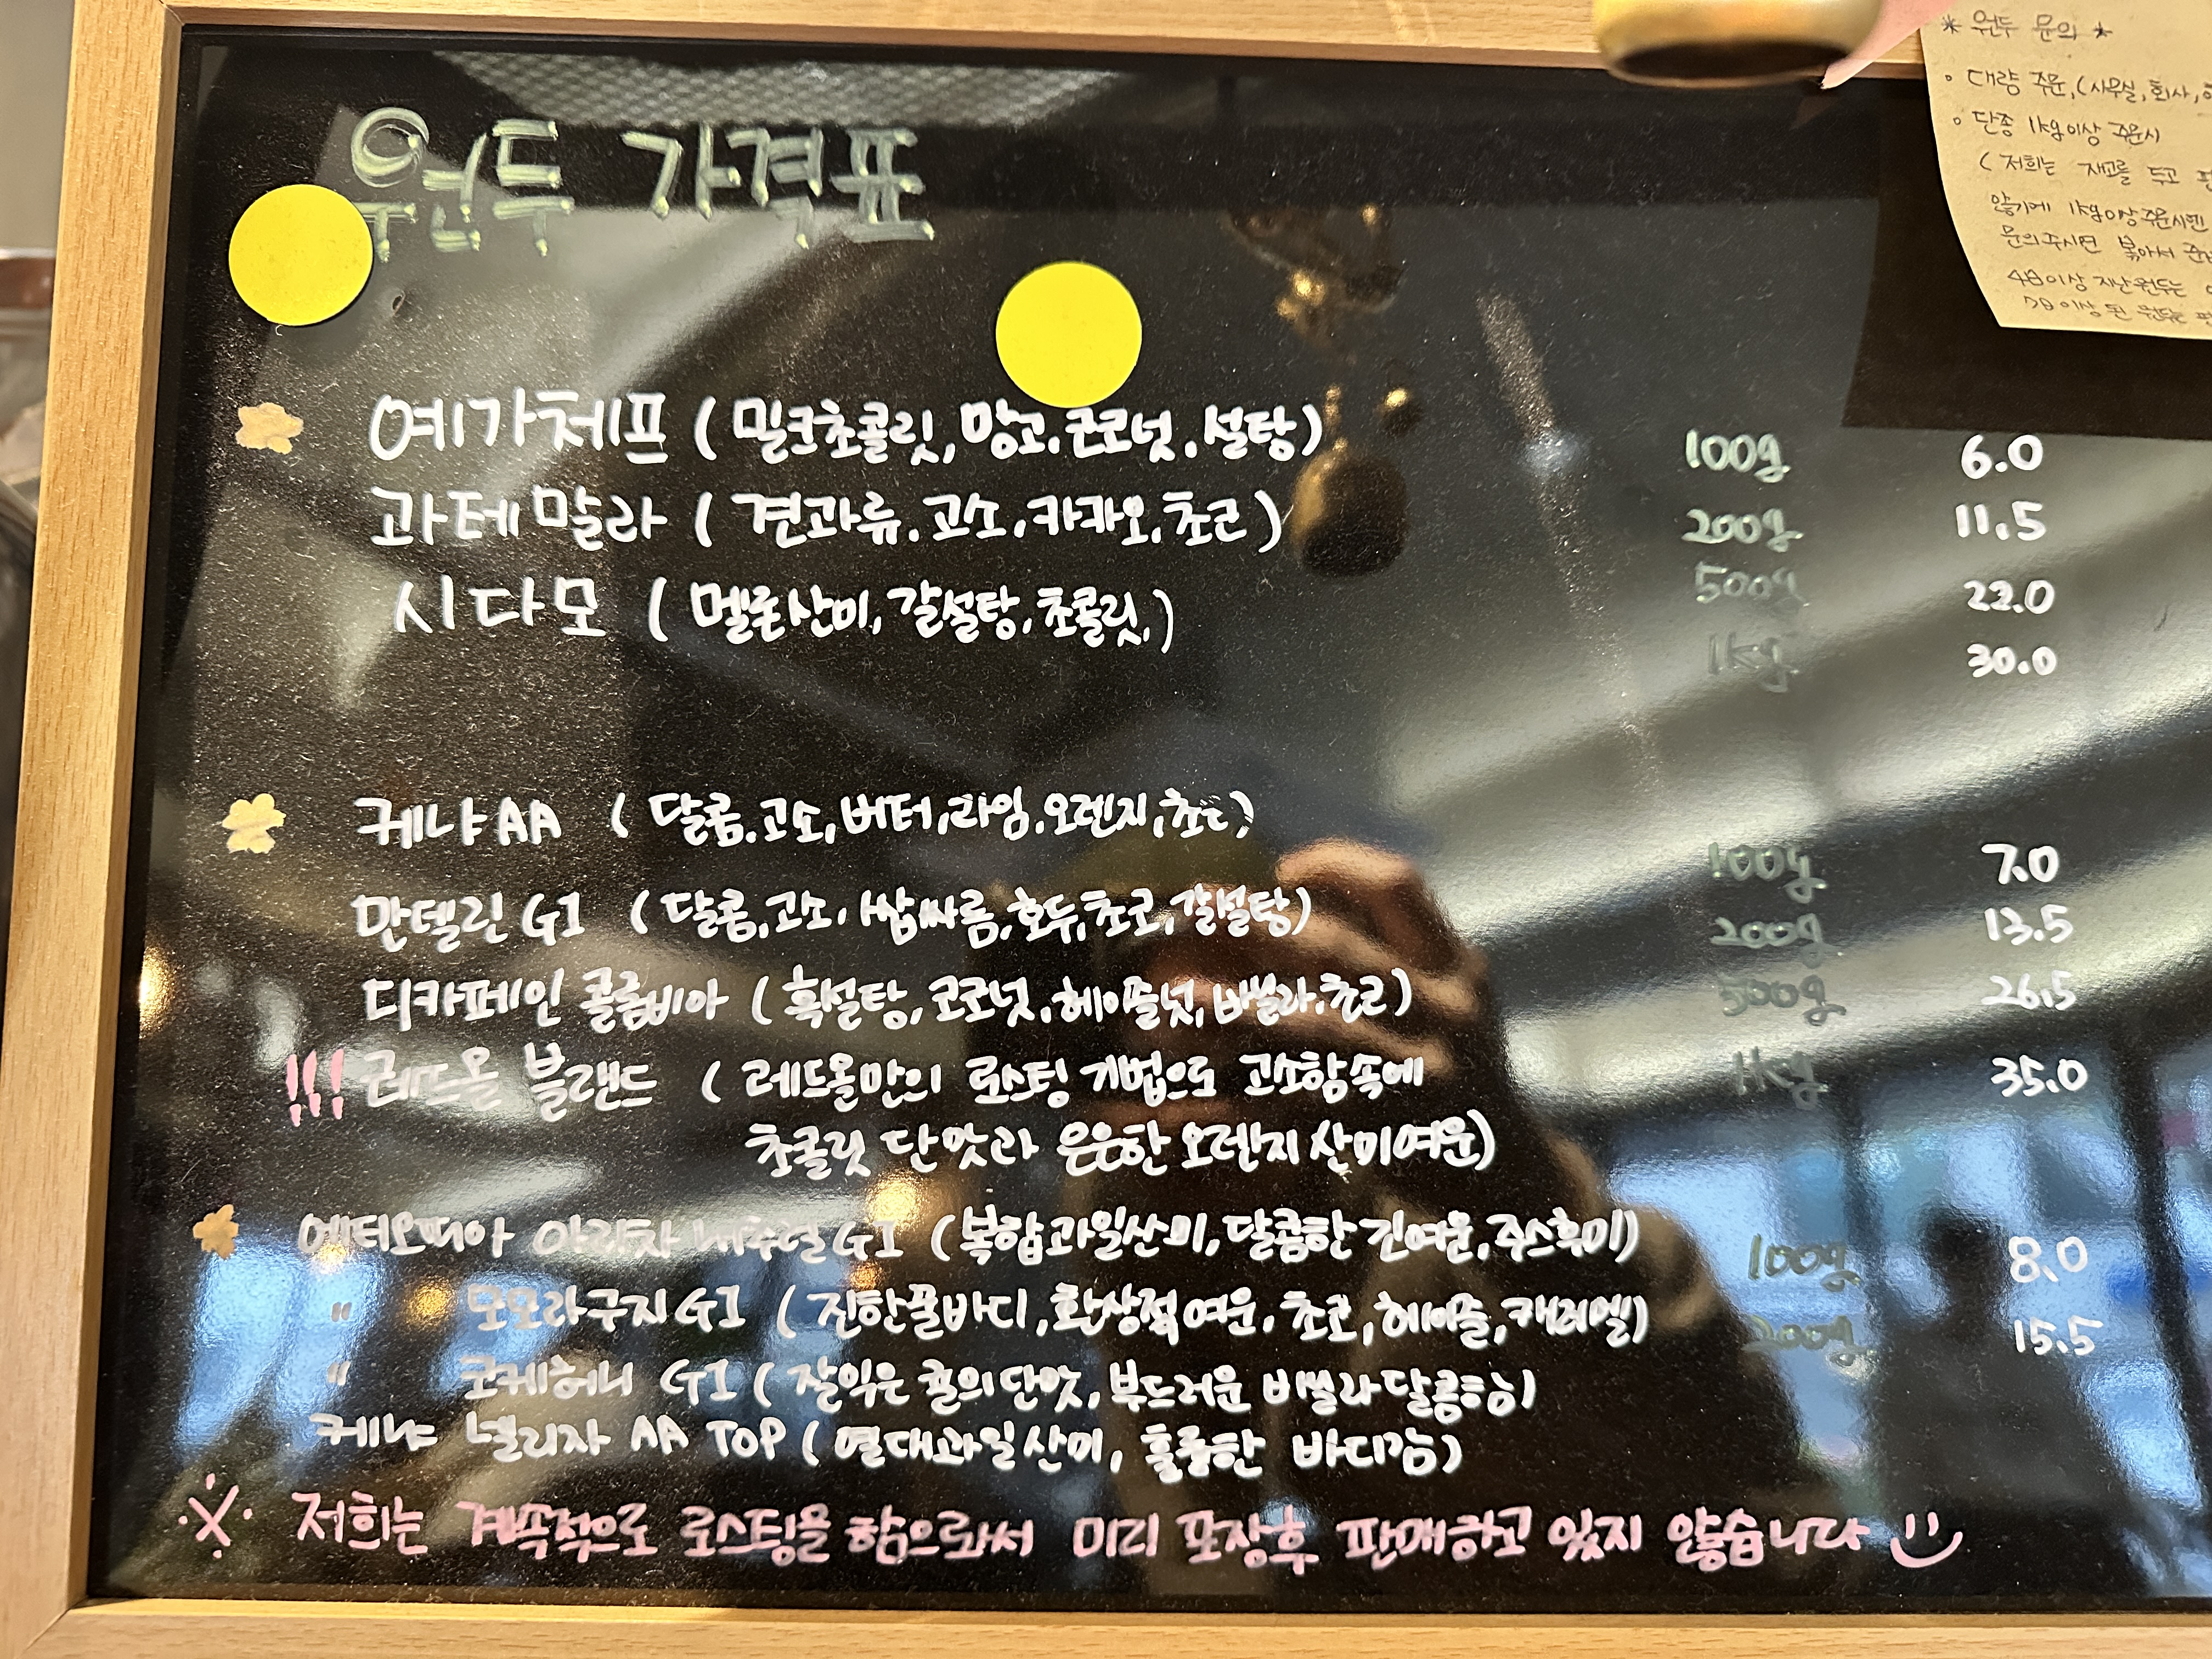 원두 가격표
예가체프 (밀크초콜릿, 망고. 코코넛. 설탕) 100g 6.0
과테말라 (견과류. 고소. 카카오. 초코) 200g 11.5
시다모 (멜론산미, 갈설탕, 초콜릿,) 500g 22.0
1kg 30.0
케냐AA (달콤. 고소, 버터, 라임. 오렌지, 초코) 100g 7.0
만델린 G1 (달콤, 고소, 쌉싸름, 호두, 초코, 갈설탕) 200g 13.5
디카페인 콜롬비아 (흑설탕, 코코넛, 헤이즐넛, 바닐라. 초코) 500g 26.5
!!! 레드올 블랜드 (레드올만의 로스팅 기법으로 고소함 속에 1kg 35.0
초콜릿 단맛과 은은한 오렌지 산미여운)
에티오피아 아리차 내추럴 G1 (복합과일산미, 달콤한 긴여운, 주스후미) 100g 8.0
" 모모라구지 G1 (진한풀바디, 환상적여운, 초코, 헤이즐, 캐러멜) 200g 15.5
" 코케허니 G1 (잘익은 귤의단맛, 부드러운 바닐라달콤함)
케냐 AA TOP (열대과일산미, 훌륭한 바디감)
※ 저희는 계속적으로 로스팅을 함으로서 미리 포장후 판매하고 있지 않습니다
* 원두 문의 *
대량 주문, (사무실, 회사,
단종 1kg이상 주문시
(저희는 재고를 두고
않기에 1kg이상주문시엔
문의주시면 볶아서
4일이상 지난원두는
7일이상 된 원두는